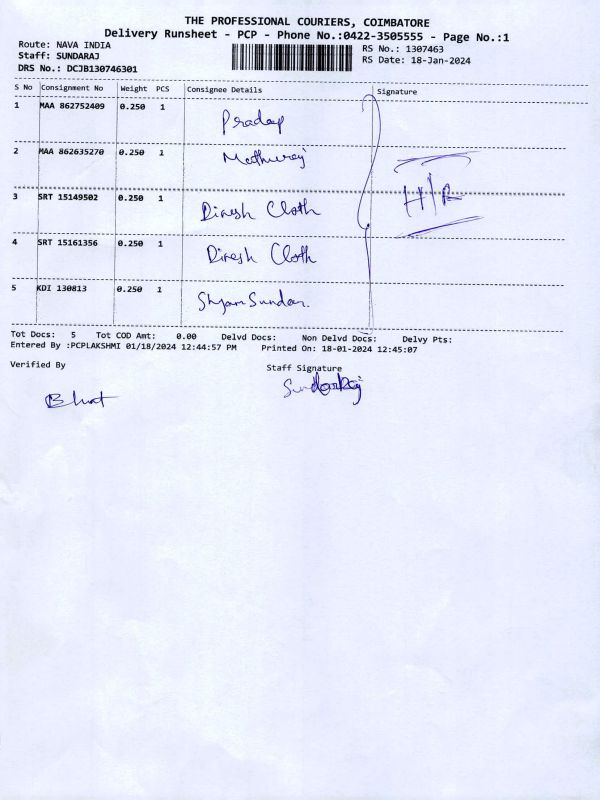 THE PROFESSIONAL COURIERS, COIMBATORE
Delivery Runsheet - PCP - Phone No.:0422-3505555 - Page No.:1
Route: NAVA INDIA
Staff: SUNDARAJ
DRS No.: DCJB130746301
RS No.: 1307463
RS Date: 18-Jan-2024
S No Consignment No Weight PCS Consignee Details Signature
1 MAA 862752409 0.250 1 Pradap
2 MAA 862635270 0.250 1 Mathuraj
H/R
3 SRT 15149502 0.250 1 Dinesh Cloth
4 SRT 15161356 0.250 1 Dinesh Cloth
5 KDI 130813 0.250 1 Shyam Sundar.
Tot Docs: 5 Tot COD Amt: 0.00 Delvd Docs: Non Delvd Docs: Delvy Pts:
Entered By :PCPLAKSHMI 01/18/2024 12:44:57 PM Printed On: 18-01-2024 12:45:07
Verified By
Staff Signature